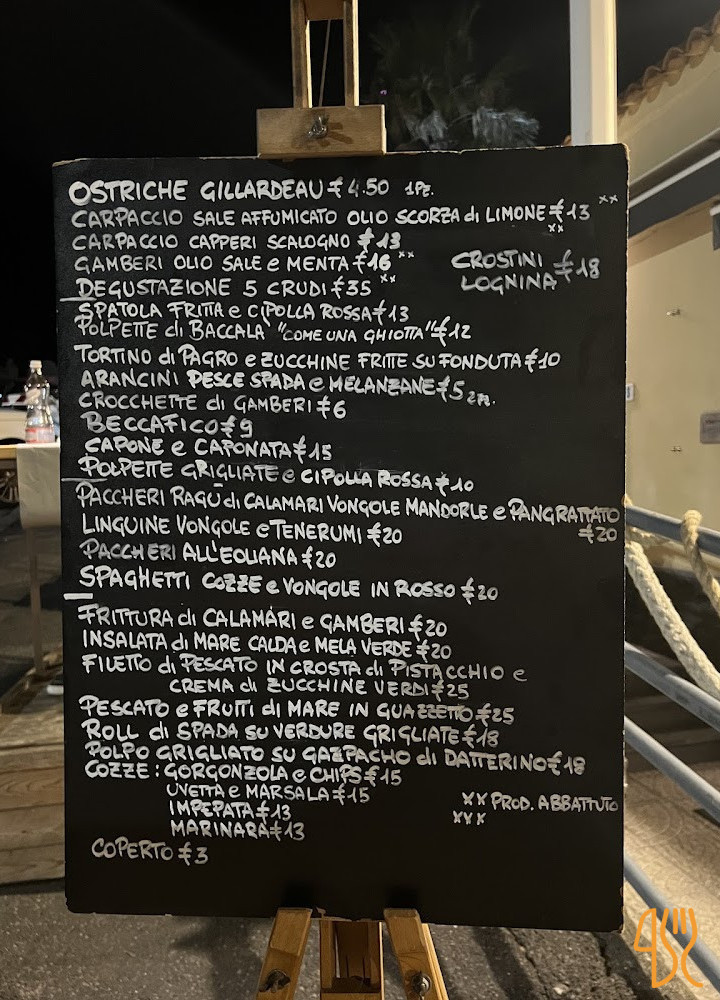 OSTRICHE GILLARDEAU € 4.50 1PZ.
CARPACCIO SALE AFFUMICATO OLIO SCORZA di LIMONE €13 **
CARPACCIO CAPPERI SCALOGNO €13 **
GAMBERI OLIO SALE e MENTA €16 **
CROSTINI LOGNINA €18
DEGUSTAZIONE 5 CRUDI €35 **
SPATOLA FRITTA e CIPOLLA ROSSA €13
POLPETTE di BACCALA' "COME UNA GHIOTTA" €12
TORTINO di PAGRO e ZUCCHINE FRITTE SU FONDUTA €10
ARANCINI PESCE SPADA e MELANZANE €5 2PZ.
CROCCHETTE di GAMBERI €6
BECCAFICO €9
CAPONE e CAPONATA €15
POLPETTE GRIGLIATE e CIPOLLA ROSSA €10
PACCHERI RAGÙ di CALAMARI VONGOLE MANDORLE e PANGRATTATO
€20
LINGUINE VONGOLE e TENERUMI €20
PACCHERI ALL'EOLIANA €20
SPAGHETTI COZZE e VONGOLE IN ROSSO €20
FRITTURA di CALAMARI e GAMBERI €20
INSALATA di MARE CALDA e MELA VERDE €20
FILETTO di PESCATO IN CROSTA di PISTACCHIO e
CREMA di ZUCCHINE VERDI €25
PESCATO e FRUTTI di MARE IN GUAZZETTO €25
ROLL di SPADA SU VERDURE GRIGLIATE €18
POLPO GRIGLIATO SU GAZPACHO di DATTERINO €18
COZZE: GORGONZOLA e CHIPS €15
UVETTA e MARSALA €15
IMPEPATA €13
MARINARA €13
XX PROD. ABBATTUTO
XXX
COPERTO €3